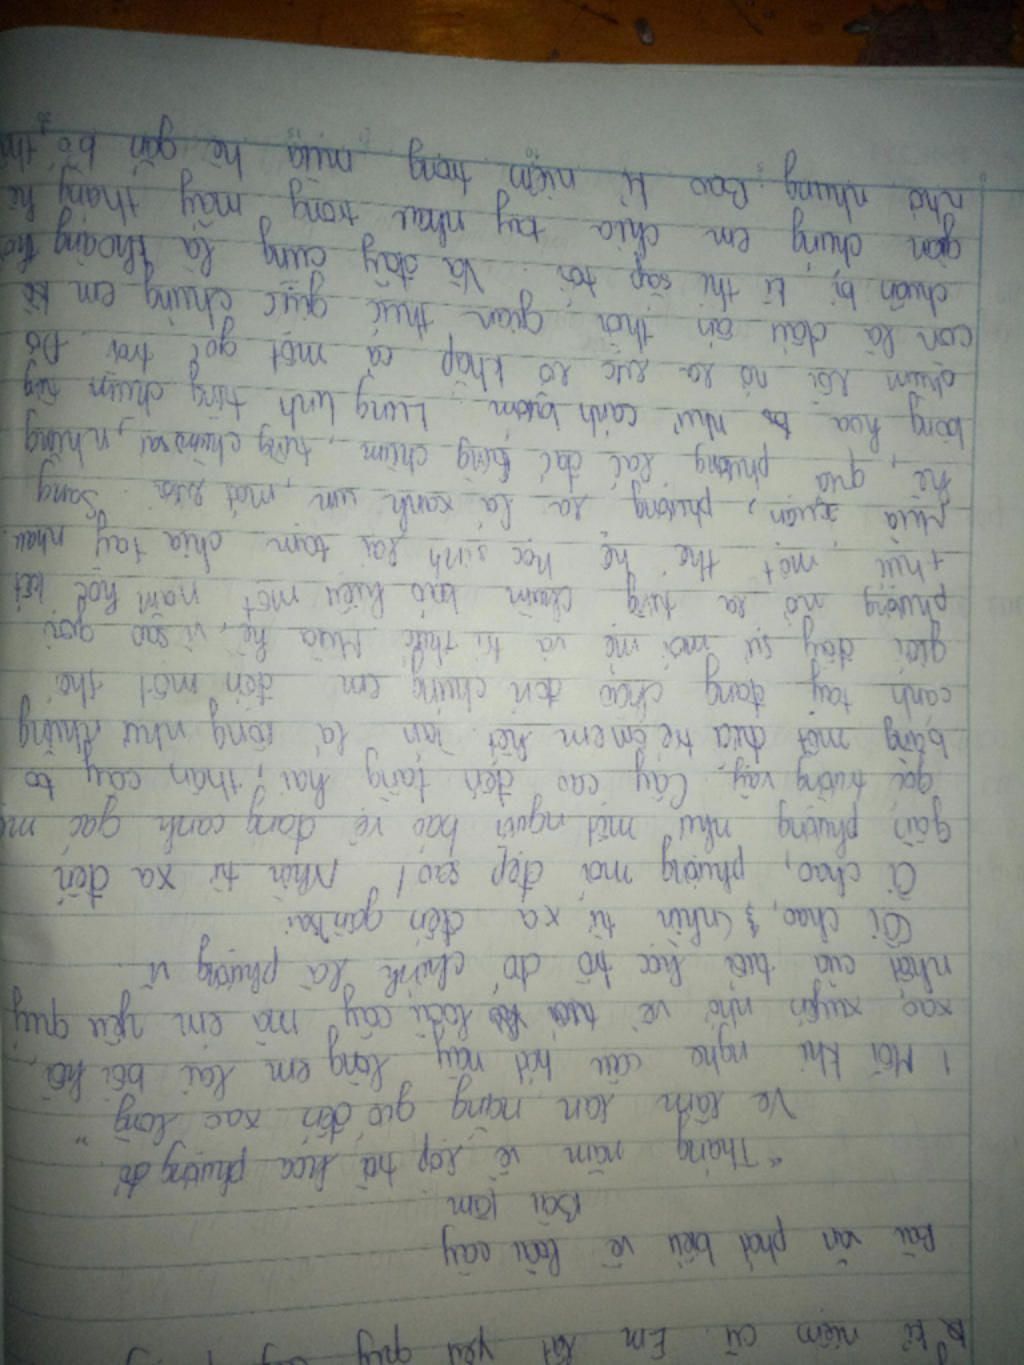 kỉ niệm cũ. Em rất yêu quý
Bài văn phát biểu về loài cây
Bài làm
"Tháng năm về lợp trời hoa phượng đỏ
Ve lắm lan nặng gió đến xao lòng"
1 Mỗi khi nghe câu hát này lòng em lại bồi hồi,
xao xuyến nhớ về loài cây mà em yêu quý
nhất của tuổi học trò đó chính là phượng vĩ.
Ôi chao, (nhìn từ xa đến gần
Ôi chao, phượng mới đẹp sao! Nhìn từ xa đến
gần phượng như một người bảo vệ đang canh gác
gác trường vậy. Cây cao đến tầng hai, thân cây to
bằng một đứa trẻ ôm em hết. Tán lá rộng như những
cánh tay đang chào đón chúng em đến một thế
giới đầy sự mới mẻ và tri thức. Mùa hè, vì sao gọi
phượng nở ra từng chùm báo hiệu một năm học kết
thúc, một thế hệ học sinh lại tạm chia tay nhau.
Mùa xuân, phượng ra lá xanh um, mát rượi. Sang
hè, quả phượng lác đác từng chùm, từng chùm, những
bông hoa như cánh bướm lung linh từng chùm từng
chùm rồi nở ra rực rỡ khắp cả một góc trời. Đó
còn là dấu ấn thời gian thúc giục chúng em
chuẩn bị kì thi sắp tới. Và đây cũng là khoảng thời
gian chúng em chia tay nhau trong mấy tháng hè
nhớ những bao kỉ niệm trong mùa hè gắn bó,